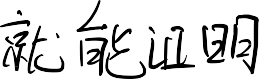 就能证明